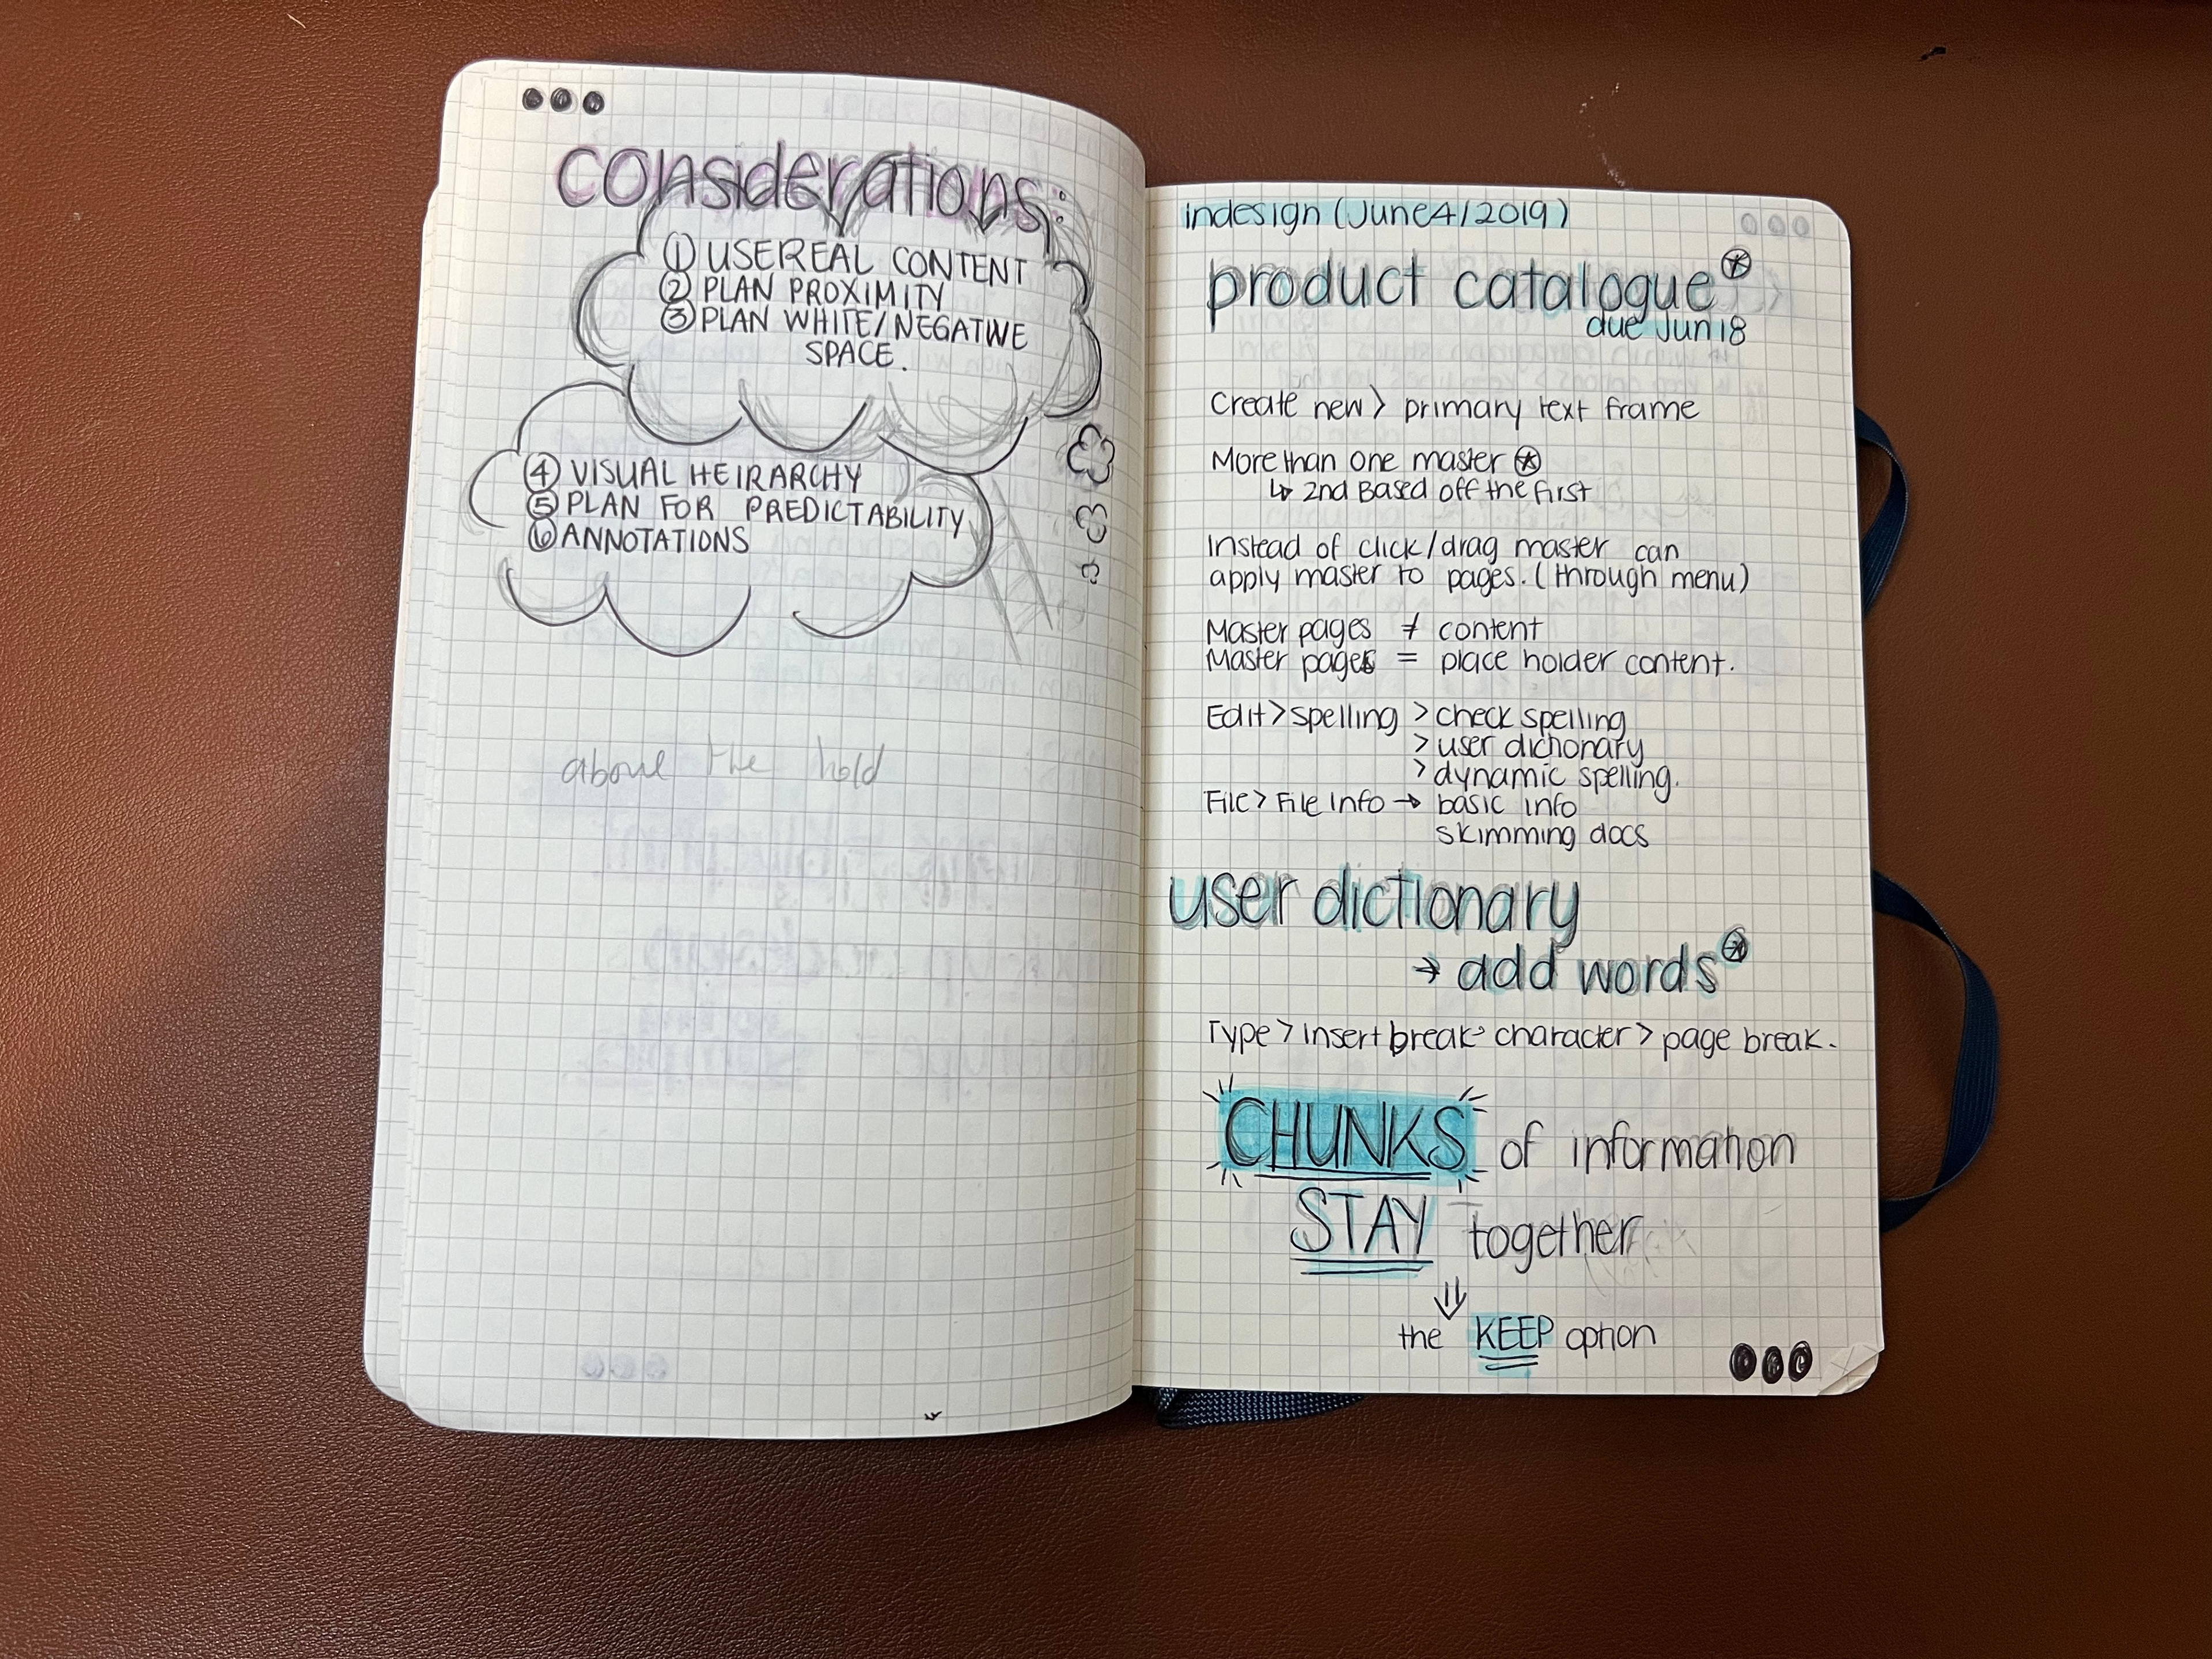 considerations:
① USE REAL CONTENT
② PLAN PROXIMITY
③ PLAN WHITE/NEGATIVE
SPACE.
④ VISUAL HEIRARCHY
⑤ PLAN FOR PREDICTABILITY
⑥ ANNOTATIONS
above the hold
indesign (June 4/2019)
product catalogue
due Jun 18
Create new > primary text frame
More than one master
↳ 2nd Based off the first
Instead of click/drag master can
apply master to pages. (through menu)
Master pages ≠ content
Master pages = place holder content.
Edit > spelling > check spelling
> user dictionary
> dynamic spelling.
File > File Info → basic info
skimming docs
user dictionary
→ add words
Type > insert break > character > page break.
CHUNKS of information
STAY together
⇓
the KEEP option